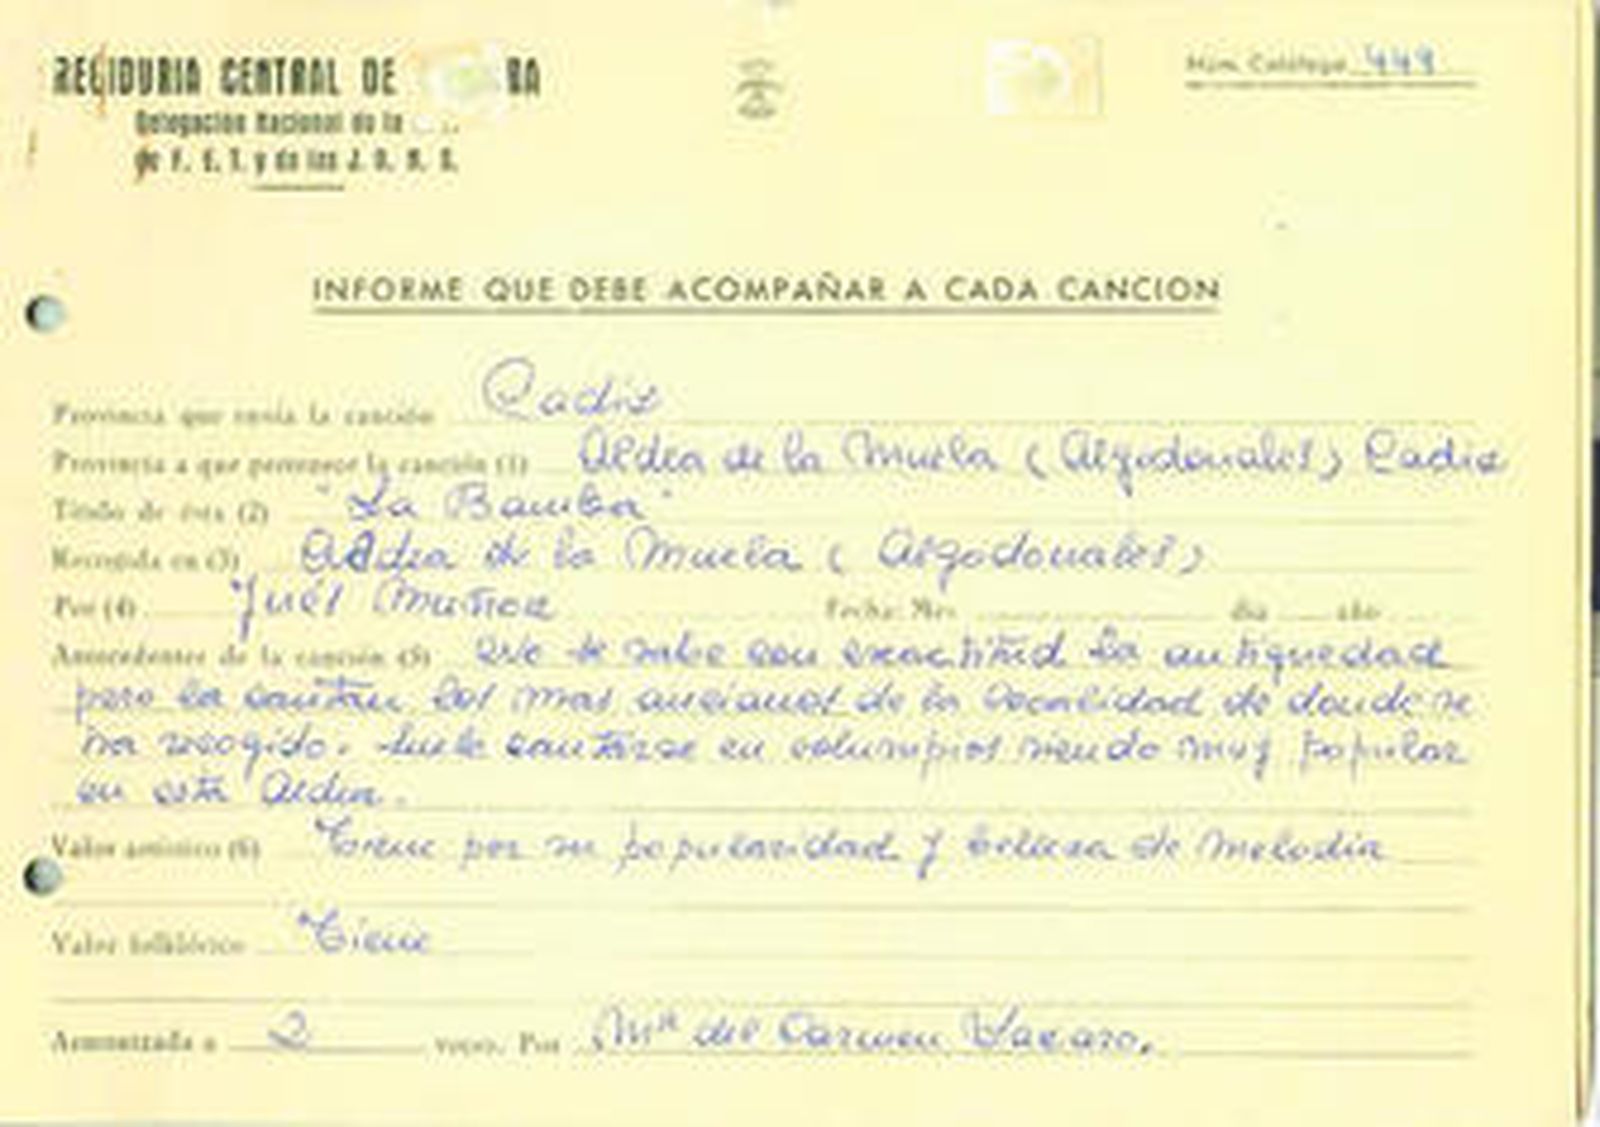 REGIDURIA CENTRAL DE RA
Delegación Nacional de la
de F. E. T. y de las J. O. N. S.
Núm. Catálogo 449
INFORME QUE DEBE ACOMPAÑAR A CADA CANCION
Provincia que envía la canción Cadiz
Provincia a que pertenece la canción (1) Aldea de la Muela (Algodonales) Cadiz
Título de ésta (2) "La Bamba"
Recogida en (3) Aldea de la Muela (Algodonales)
Por (4) Inés Muñoz Fecha: Mes día año
Antecedentes de la canción (5) No se sabe con exactitud la antiguedad
pero la cantan los mas ancianos de la localidad de donde se
ha recogido. Suele cantarse en columpios siendo muy popular
en esta Aldea.
Valor artístico (6) Tiene por su popularidad y belleza de melodia
Valor folklórico Tiene
Armonizada a 2 voces. Por Mª del Carmen Lazaro.